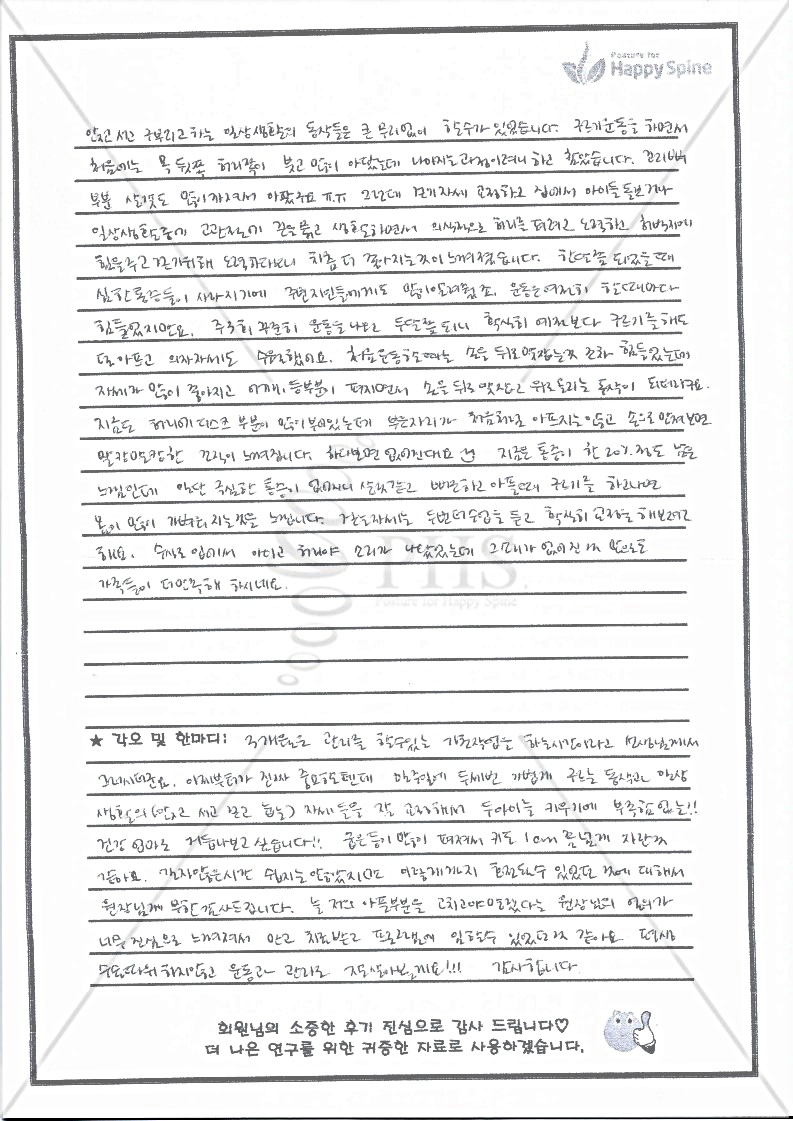 Posture for
Happy Spine
앉고 서고 구부리고 하는 일상생활의 동작들은 큰 무리없이 할수가 있었습니다. 구르기운동을 하면서
처음에는 목 뒷쪽 허리쪽이 붓고 많이 아팠는데 나아지는 과정이려니 하고 참았습니다. 꼬리뼈
부분 살갗도 많이 까져서 아팠구요 ㅠㅠ 그런데 걷기자세 교정하고 집에서 아이들 돌보거나
일상생활중에 고관절에 끈을 묶고 생활하면서 의식적으로 허리를 펴려고 노력하고 허벅지에
힘을주고 걷기위해 노력하다보니 차츰 더 좋아지는것이 느껴졌습니다. 한달쯤 되었을때
심한통증들이 사라지기에 주변지인들에게도 많이 알려줬죠. 운동은 여전히 할때마다
힘들었지만요. 꾸준히 운동을 나오고 두달쯤 되니 확실히 예전보다 구르기를 해도
덜 아프고 의자자세도 수월했어요. 처음 운동할때는 손을 뒤로 맞잡는것 조차 힘들었는데
자세가 많이 좋아지고 어깨, 등부분이 펴지면서 손을 뒤로 맞잡고 위로 올리는 동작이 되더라구요.
지금도 허리에 디스크 부분이 많이 부어있는데 부은자리가 처음처럼 아프지는 않고 손으로 만져보면
말랑말랑한 느낌이 느껴집니다. 하다보면 없어진대요 지금은 통증이 한 20% 정도 남은
느낌인데 일단 극심한 통증이 없어지니 살것같고 뻐근하고 아플때 구르기를 하고나면
몸이 많이 가벼워지는것을 느낍니다. 자세는 두번 더 수업을 듣고 확실히 교정을 해보려고
해요. 수시로 입에서 아이고 허리야 소리가 나왔었는데 그소리가 없어진 것 만으로도
가족들이 더 만족해 하시네요.
PHS
Posture for Happy Spine
★ 각오 및 한마디: 3개월은 관리를 할수있는 기초작업을 하는시간이라고 선생님께서
그러시더군요. 이제부터가 진짜 중요할텐데 일주일에 두세번 가볍게 구르는 동작과 일상
생활의 (앉고 서고 걷고 눕는) 자세들을 잘 교정해서 두아이를 키우기에 부족함 없는!!
건강 엄마로 거듭나보고 싶습니다!! 굽은등이 많이 펴져서 키도 1cm쯤 넘게 자란것
같아요. 길지않은시간 쉽지는 않았지만 이렇게까지 호전될수 있었던 것에 대해서
원장님께 무한감사드립니다. 늘 저의 아픈부분을 고치고야 말겠다는 원장님의 열의가
너무 진심으로 느껴져서 안고 치료받고 프로그램에 임할수 있었던것 같아요.
하지않고 운동과 관리로 잘 살아볼게요!!! 감사합니다
회원님의 소중한 후기 진심으로 감사 드립니다♡
더 나은 연구를 위한 귀중한 자료로 사용하겠습니다.